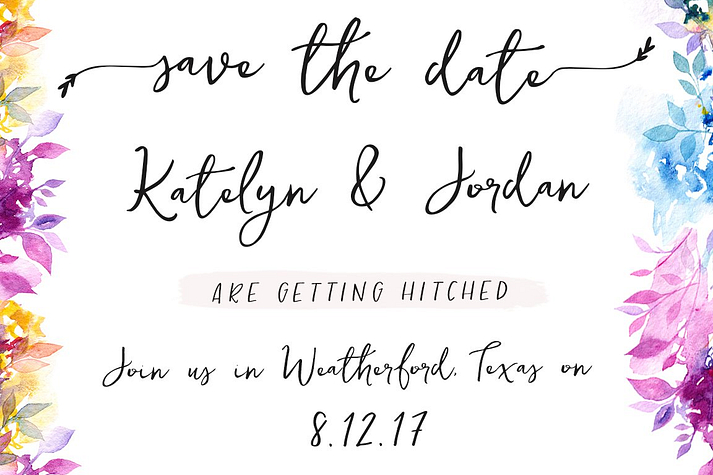 save the date
Katelyn & Jordan
ARE GETTING HITCHED
Join us in Weatherford, Texas on
8.12.17